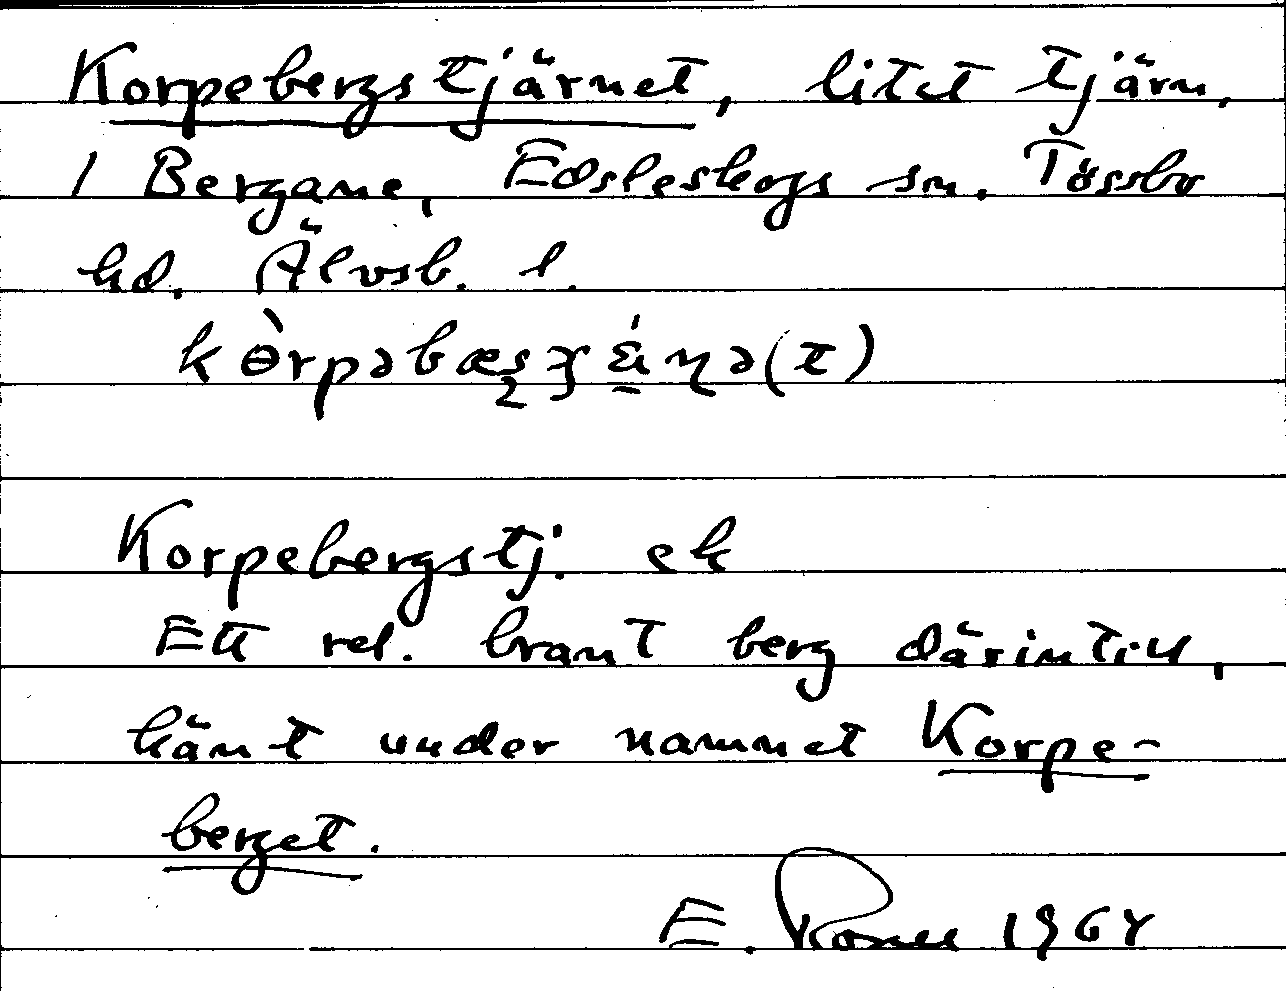 Korpebergstjärnet, litet tjärn,
i Bergane, Edsleskogs sn. Tössbo
hd. Älvsb. l.
Korpebergstj. ek
Ett rel. brant berg därintill,
känt under namnet Korpe-
berget.
E. 196